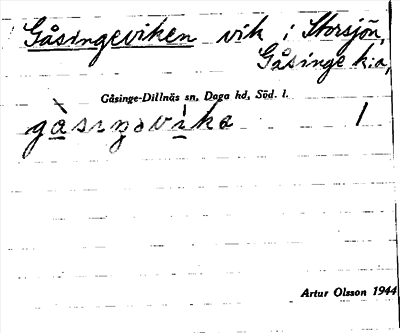 Gåsingeviken vik i Storsjön,
Gåsinge k:a,
Gåsinge-Dillnäs sn, Daga hd, Söd. l.
gàsıŋəvìka 1
Artur Olsson 1944